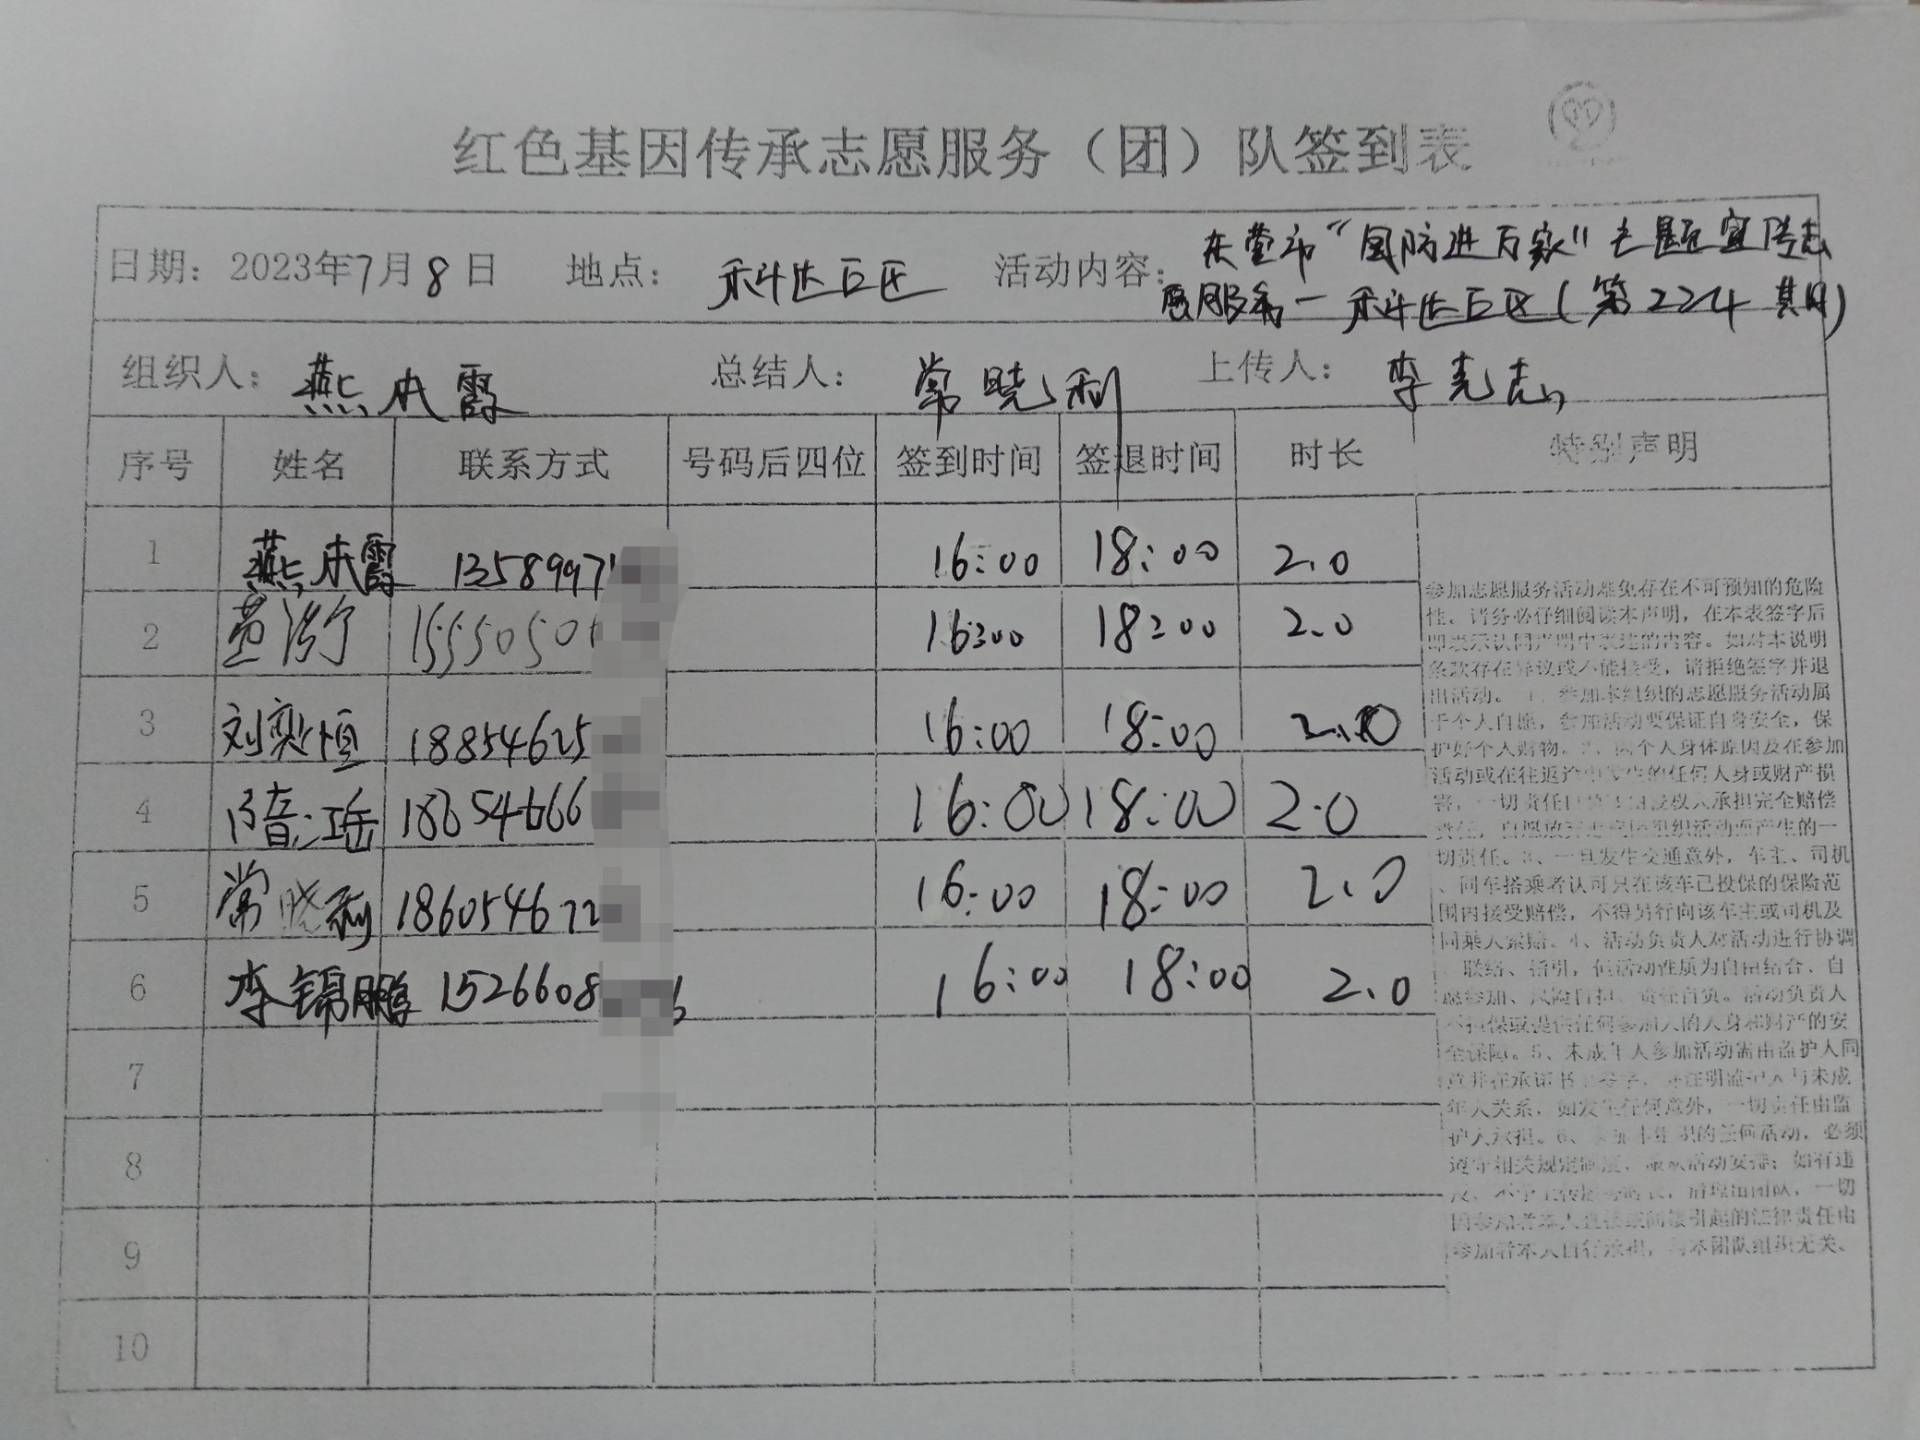 红色基因传承志愿服务（团）队签到表
日期：2023年7月8日 地点：科达巨区 活动内容：东营市“国防进万家”主题宣传志
愿服务一科达巨区（第224期）
组织人：燕本霞 总结人：常晓利 上传人：李光志
序号 姓名 联系方式 号码后四位 签到时间 签退时间 时长 特别声明
1 燕本霞 1358997 16:00 18:00 2.0
2 15550501 16:00 18:00 2.0
3 刘奕恒 18854625 16:00 18:00 2.0
4 18654666 16:00 18:00 2.0
5 常晓利 186054672 16:00 18:00 2.0
6 李锦鹏 1526608 6 16:00 18:00 2.0
7
8
9
10
参加志愿服务活动难免存在不可预知的危险
性，请务必仔细阅读本声明，在本表签字后
即表示认同声明中表述的内容。如对本说明
条款存在异议或不能接受，请拒绝签字并退
出活动。1、参加本组织的志愿服务活动属
于个人自愿，参加活动要保证自身安全，保
护好个人财物。2、因个人身体原因及在参加
活动或在往返途中发生的任何人身或财产损
害，一切责任由 承担完全赔偿
责任，自愿放弃 组织活动而产生的一
切责任。3、一旦发生交通意外，车主、司机
、同车搭乘者认可只在该车已投保的保险范
围内接受赔偿，不得另行向该车主或司机及
同乘人索赔。4、活动负责人对活动进行协调
、联络、指引，但活动性质为自由结合、自
愿参加、风险自担、责任自负。活动负责人
不担保或提供任何参加人的人身和财产的安
全保障。5、未成年人参加活动需由监护人同
意并在承诺书上签字，并注明监护人与未成
年人关系，如发生任何意外，一切责任由监
护人承担。6、参加本组织的任何活动，必须
遵守相关规定制度、服从活动安排；如有违
反，不予上传服务时长，清理出团队，一切
因参加者本人直接或间接引起的法律责任由
参加者本人自行承担，与本团队组织无关。